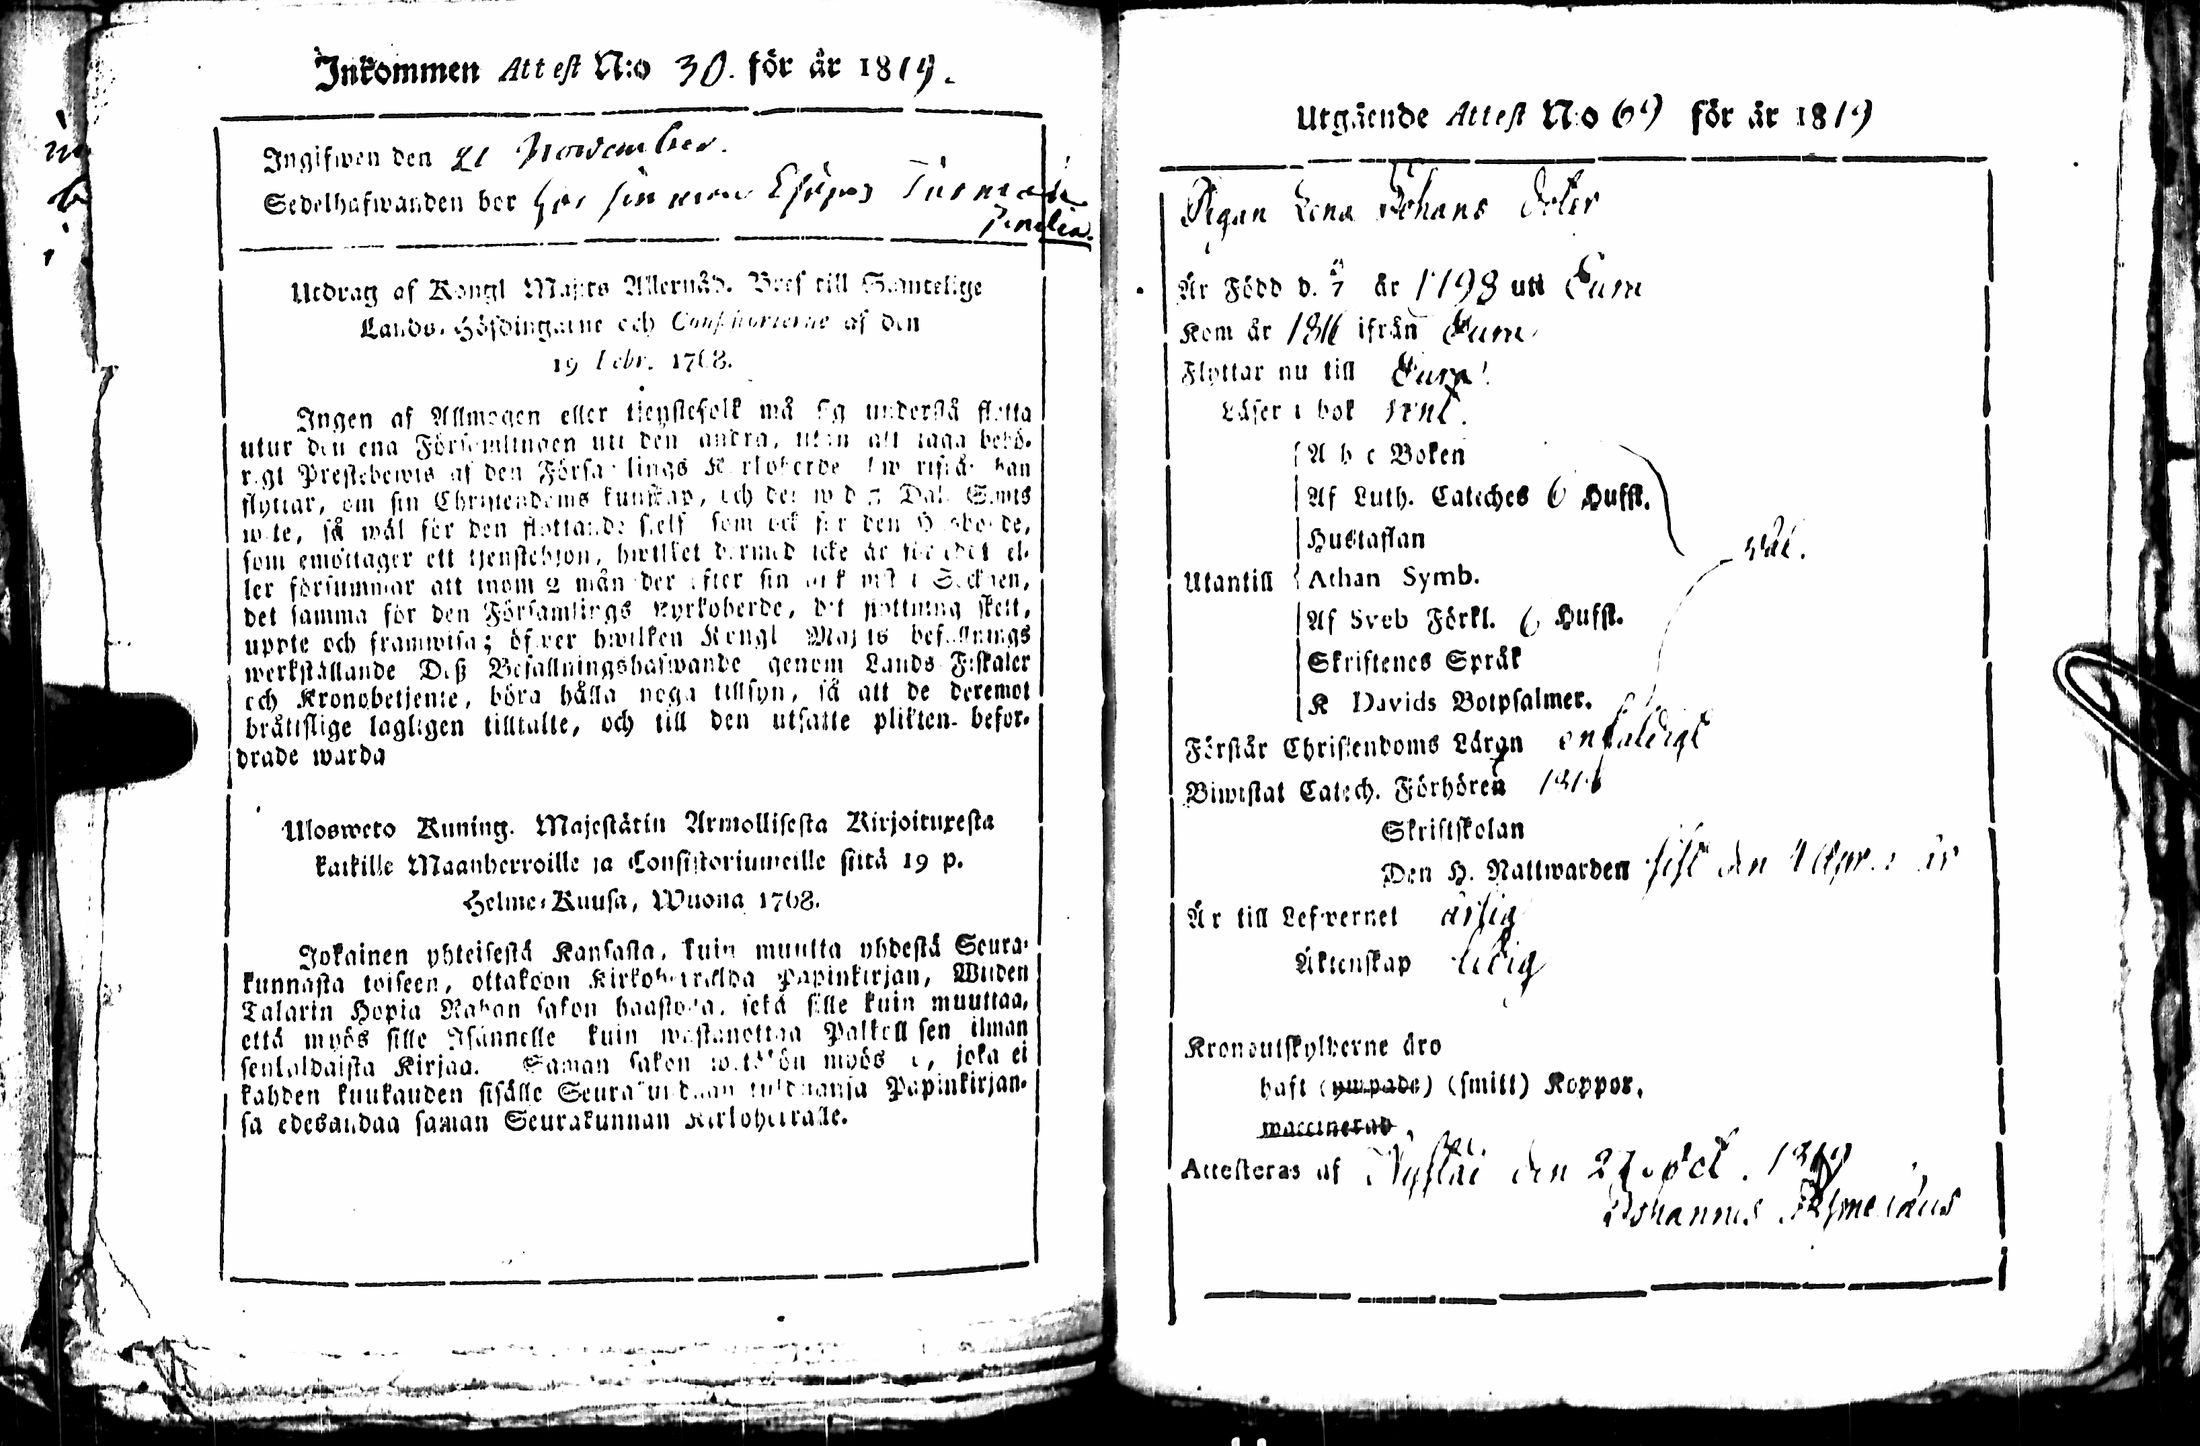 Inkommen Attest N:o 30. för år 1819.
Ingifwen den 21 November.
Sedelhafwanden bor hos sin mor
Utdrag af Kongl Maj:ts Allernåd. Bref till Samtelige
Lands-Höfdingarne och Consistorierne af den
19 Febr. 1768.
Ingen af Allmogen eller tjenstefolk må sig understå flytta
utur den ena Församlingen uti den andra, utan att taga behö-
rigt Prestebewis af den Församlings Kyrkoherde han
flyttar, om sin Christendoms kunskap, och det wid 2 Dal. S:mts
wite, så wäl för den flyttande sjelf som ock för den Husbonde,
som emottager ett tjenstehjon, hwilket dermed icke är försedt el-
ler försummar att inom 2 månader efter sin ankomst i Socknen,
det samma för den Församlings Kyrkoherde, dit flyttning skett,
uppte och framwisa; öfwer hwilken Kongl Maj:ts befallnings
werkställande Deß Befallningshafwande genom Lands Fiskaler
och Kronobetjente, böra hålla noga tillsyn, så att de deremot
bråttslige lagligen tilltalte, och till den utsatte plikten befor-
drade warda
Ulosweto Kuning. Majestätin Armollisesta Kirjoituxesta
kaikille Maanherroille ja Consistoriumeille siitä 19 p.
Helme-Kuusa, Wuona 1768.
Jokainen yhteisestä Kansasta, kuin muutta yhdestä Seura-
kunnasta toiseen, ottakoon Kirkoherralda Papinkirjan, Wiiden
Talarin Hopia Rahan sakon haastolla, sekä sille kuin muuttaa,
että myös sille Isännelle kuin wastanottaa Palkollisen ilman
senkaldaista Kirjaa. Saman sakon wetäkön myös se, joka ei
kahden kuukauden sisälle Seurakundaan tulduansa Papinkirjan-
sa edesandaa saman Seurakunnan Kirkoherralle.
Utgående Attest N:o 69 för år 1819
Pigan Lena Johans doter
Är Född d. år 1798 uti Eura
Kom år 1816 ifrån Eura
Flyttar nu till Eura
Läser i bok rent.
A b c Boken
Af Luth. Cateches 6 Hufst.
Hustaflan
wäl.
Utantill Athan Symb.
Af Sveb Förkl. 6 Hufst.
Skriftenes Språk
K Davids Botpsalmer.
Förstår Christendoms Läran enfaldigt
Biwistat Catech. Förhören 1818
Skriftskolan
Den H. Nattwarden sist den 4 Apr. i år
Är till Lefwernet ärlig
Äktenskap ledig
Kronoutskylderne äro
haft (ympade) (smitt) Koppor,
waccinerad
Attesteras af Nystad den 27 Oct. 1819
Johannes